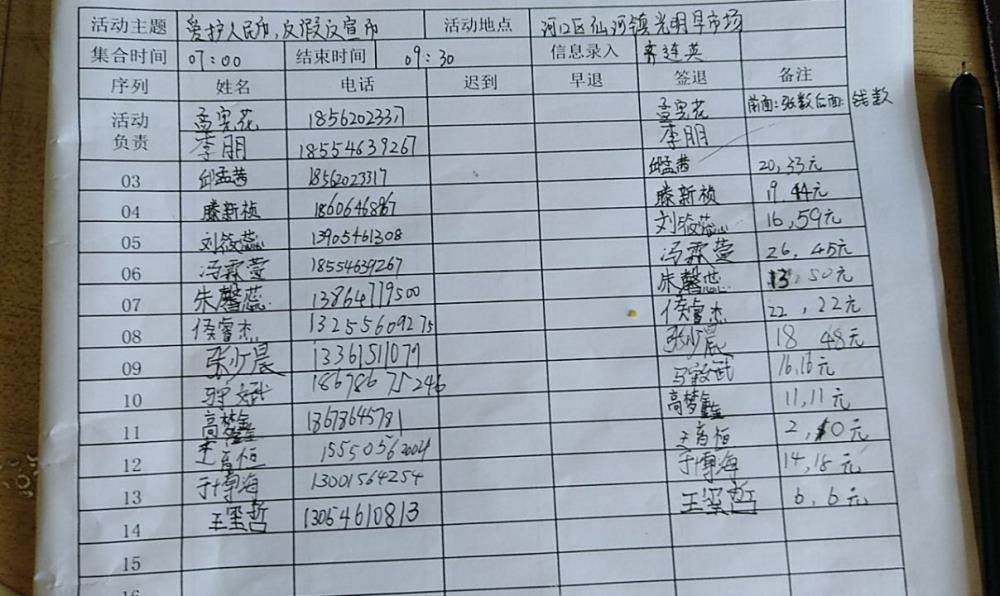 活动主题 爱护人民币,反假反宣币 活动地点 河口区仙河镇光明早市场
集合时间 07:00 结束时间 09:30 信息录入 齐连英
序列 姓名 电话 迟到 早退 签退 备注
活动负责 孟雪花 18562023317 孟雪花 前面:张数后面:钱数
李朋 18554639267 李朋
03 邱孟茜 18562023317 邱孟茜 20,33元
04 滕新桢 18606468867 滕新桢 19.44元
05 刘筱蕊 13905461308 刘筱蕊 16,59元
06 冯霖萱 18554639267 冯霖萱 26,45元
07 朱馨蕊 13864779500 朱馨蕊 13,50元
08 侯睿杰 13255609275 侯睿杰 22,22元
09 张少晨 13361511079 张少晨 18 48元
10 18678675246 16,16元
11 高梦鑫 13618645781 高梦鑫 11,11元
12 王育恒 15550562004 王育恒 2,10元
13 于博海 13001564254 于博海 14,18元
14 王玺哲 13054610813 王玺哲 6,6元
15
16